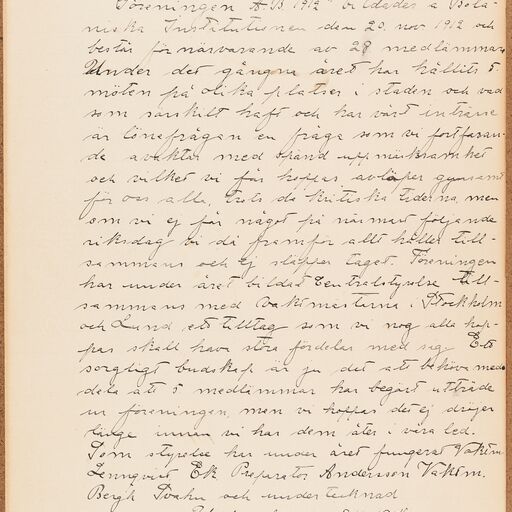 Föreningen A.B. 1912" bildades å Bota-
niska Institutionen den 20. nov 1912 och
består för närvarande av 28 medlämmar
Under det gångna året har hållits 5
möten på olika platser i staden och vad
som särskilt haft och har vårt intrésse
är lönefrågan en fråga som vi fortfaran-
de avaktar med spänd uppmärksamhet
och vilket vi får hoppas avlöper gynsamt
för oss alla, trots de kritiska tiderna, men
om vi ej får något på närmast följande
riksdag vi då framför allt håller till-
sammans och ej släpper taget. Föreningen
har under året bildat Centralstyrelse till-
sammans med Vaktmästarna i Stockholm
och Lund ett tilltag som vi nog alla hop-
pas skall hava stora fördelar med sig. Ett
sorgligt budskap är ju det att behöva med-
dela att 5 medlämmar har begärt utträde
ur föreningen, men vi hoppas det ej dröjer
länge innan vi har dem åter i våra led.
Som styrelse har under året fungerat Vaktm.
Lennqvist Ek Preparator Andersson Vaktm.
Bergh Svahn och undertecknad